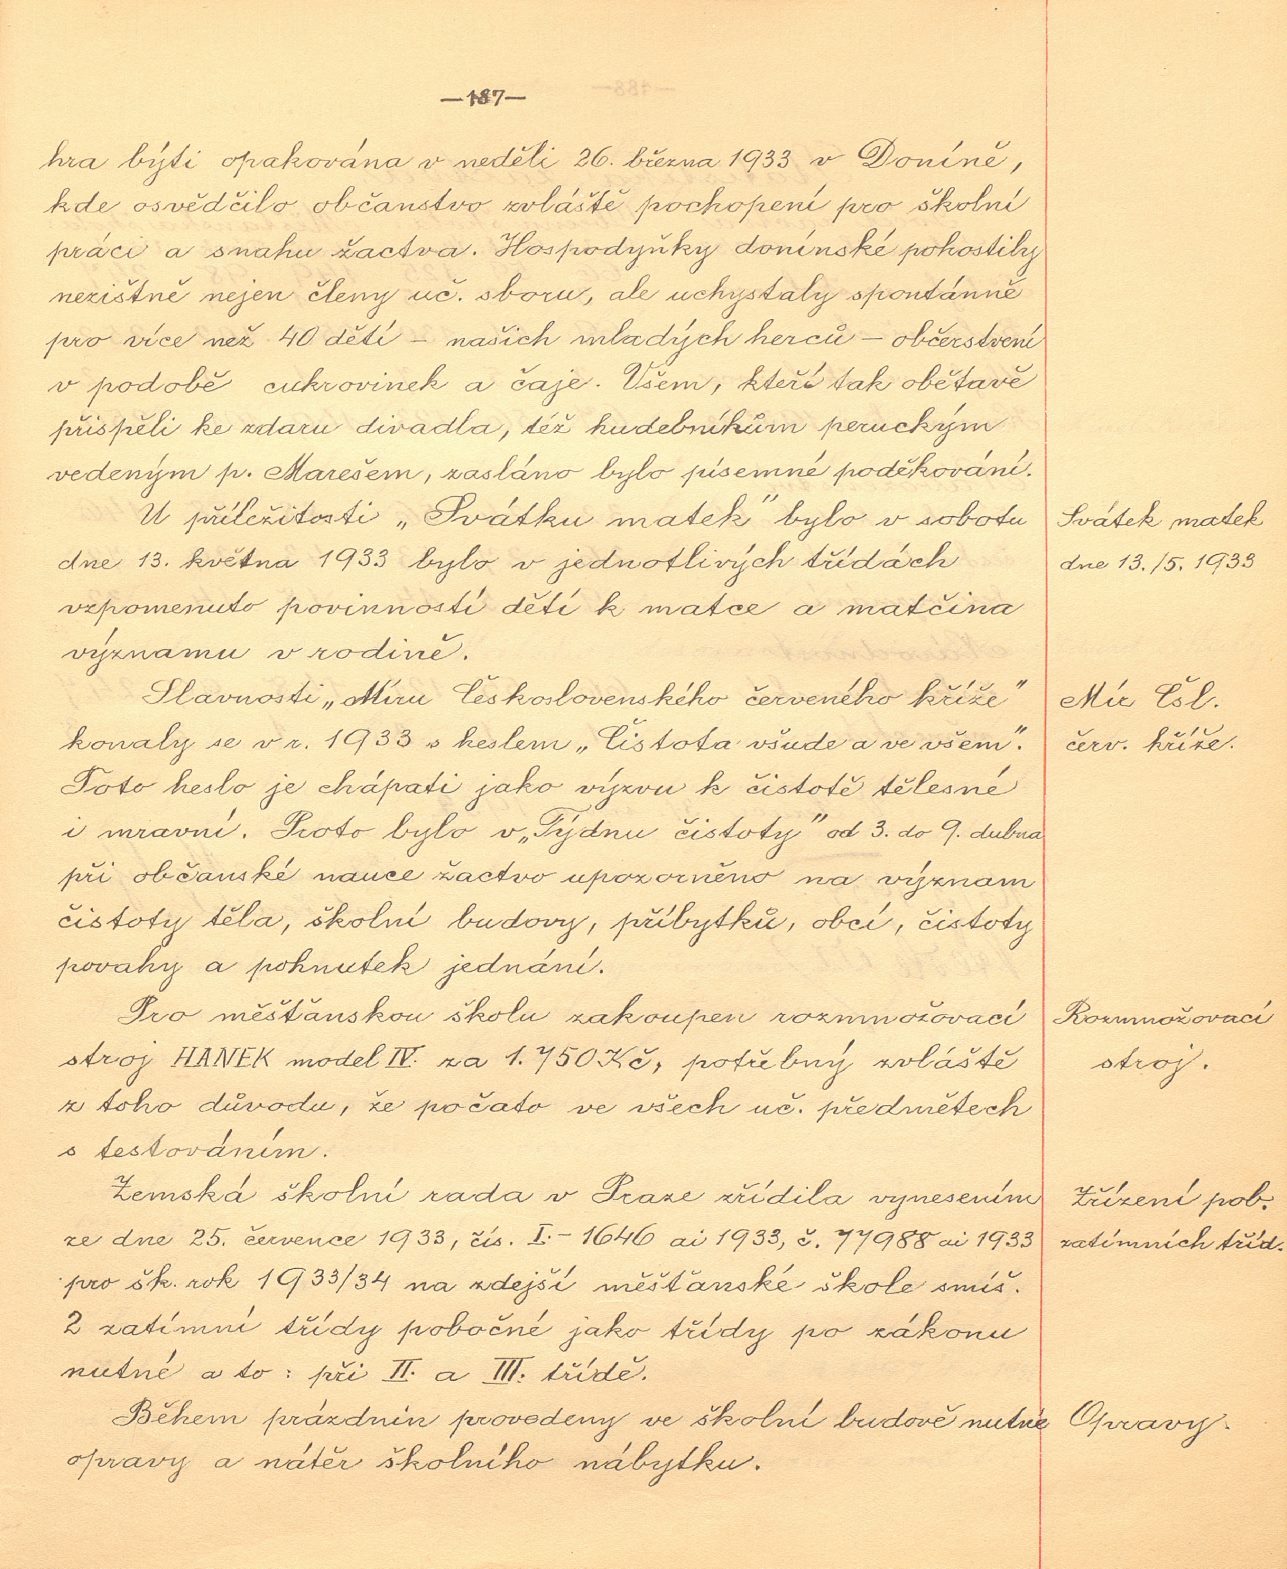 —187—
hra býti opakována v neděli 26. března 1933 v Doníně,
kde osvědčilo občanstvo zvláště pochopení pro školní
práci a snahu žactva. Hospodyňky donínské pohostily
nezištně nejen členy uč. sboru, ale uchystaly spontánně
pro více než 40 dětí – našich mladých herců – občerstvení
v podobě cukrovinek a čaje. Všem, kteří tak obětavě
přispěli ke zdaru divadla, též hudebníkům peruckým
vedeným p. Marešem, zasláno bylo písemné poděkování.
U příležitosti „Svátku matek" bylo v sobotu
Svátek matek
dne 13. května 1933 bylo v jednotlivých třídách
dne 13./5. 1933
vzpomenuto povinností dětí k matce a matčina
významu v rodině.
Slavnosti „Míru Československého červeného kříže"
Mír Čsl.
konaly se v r. 1933 s heslem „Čistota všude a ve všem".
červ. kříže.
Toto heslo je chápati jako výzvu k čistotě tělesné
i mravní. Proto bylo v „Týdnu čistoty" od 3. do 9. dubna
při občanské nauce žactvo upozorněno na význam
čistoty těla, školní budovy, příbytků, obcí, čistoty
povahy a pohnutek jednání.
Pro měšťanskou školu zakoupen rozmnožovací
Rozmnožovací
stroj HANEK model IV. za 1.750 Kč, potřebný zvláště
stroj.
z toho důvodu, že počato ve všech uč. předmětech
s testováním.
Zemská školní rada v Praze zřídila vynesením
Zřízení pob.
ze dne 25. července 1933, čís. I.- 1646 ai 1933, č. 77988 ai 1933
zatímních tříd.
pro šk. rok 1933/34 na zdejší měšťanské škole smíš.
2 zatímní třídy pobočné jako třídy po zákonu
nutné a to: při II. a III. třídě.
Během prázdnin provedeny ve školní budově nutné
Opravy.
opravy a nátěr školního nábytku.